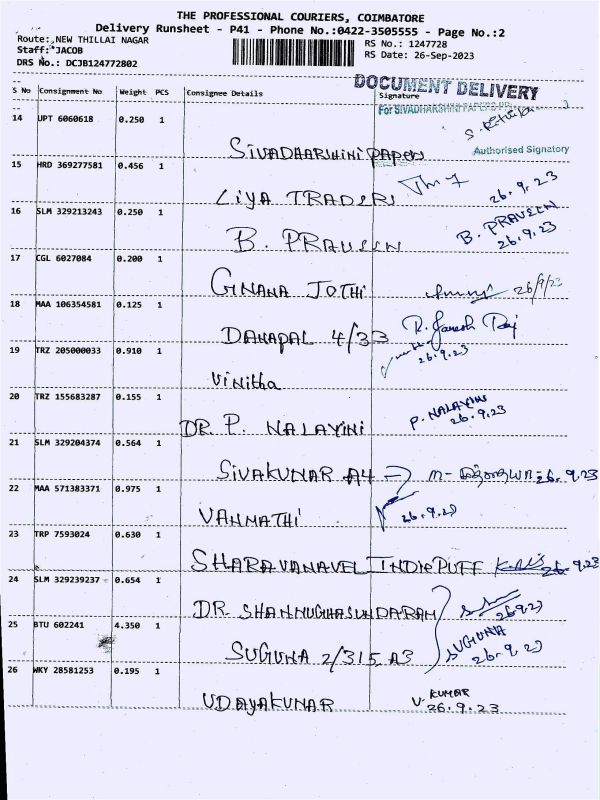 THE PROFESSIONAL COURIERS, COIMBATORE
Delivery Runsheet - P41 - Phone No.:0422-3505555 - Page No.:2
Route:,NEW THILLAI NAGAR
Staff:*JACOB
DRS No.: DCJB124772802
RS No.: 1247728
RS Date: 26-Sep-2023
DOCUMENT DELIVERY
S No Consignment No Weight PCS Consignee Details Signature
For SIVADHARSHINI PAPERS
14 UPT 6060618 0.250 1
SIVADHARSHINI PAPERS
Authorised Signatory
15 HRD 369277581 0.456 1
LIYA TRADERS 26.9.23
16 SLM 329213243 0.250 1
B. PRAVEEN B. PRAVEEN
26.9.23
17 CGL 6027084 0.200 1
GNANA JOTHI 26/9/23
18 MAA 106354581 0.125 1
DANAPAL 4/33 R. Ganesh Raj
19 TRZ 205000033 0.910 1
26.9.23
Vinitha
20 TRZ 155683287 0.155 1
DR P. NALAYINI P. NALAYINI
26.9.23
21 SLM 329204374 0.564 1
SIVAKUMAR A4 26.9.23
22 MAA 571383371 0.975 1
VANMATHI 26.9.23
23 TRP 7593024 0.630 1
SHARAVANAVEL INDIA PUFF 26.9.23
24 SLM 329239237 0.654 1
DR. SHANMUGHASUNDARAM 26.9.23
25 BTU 602241 4.350 1
SUGUNA 2/315 A3 SUGUNA
26.9.23
26 WKY 28581253 0.195 1
UDAYAKUMAR V. KUMAR
26.9.23